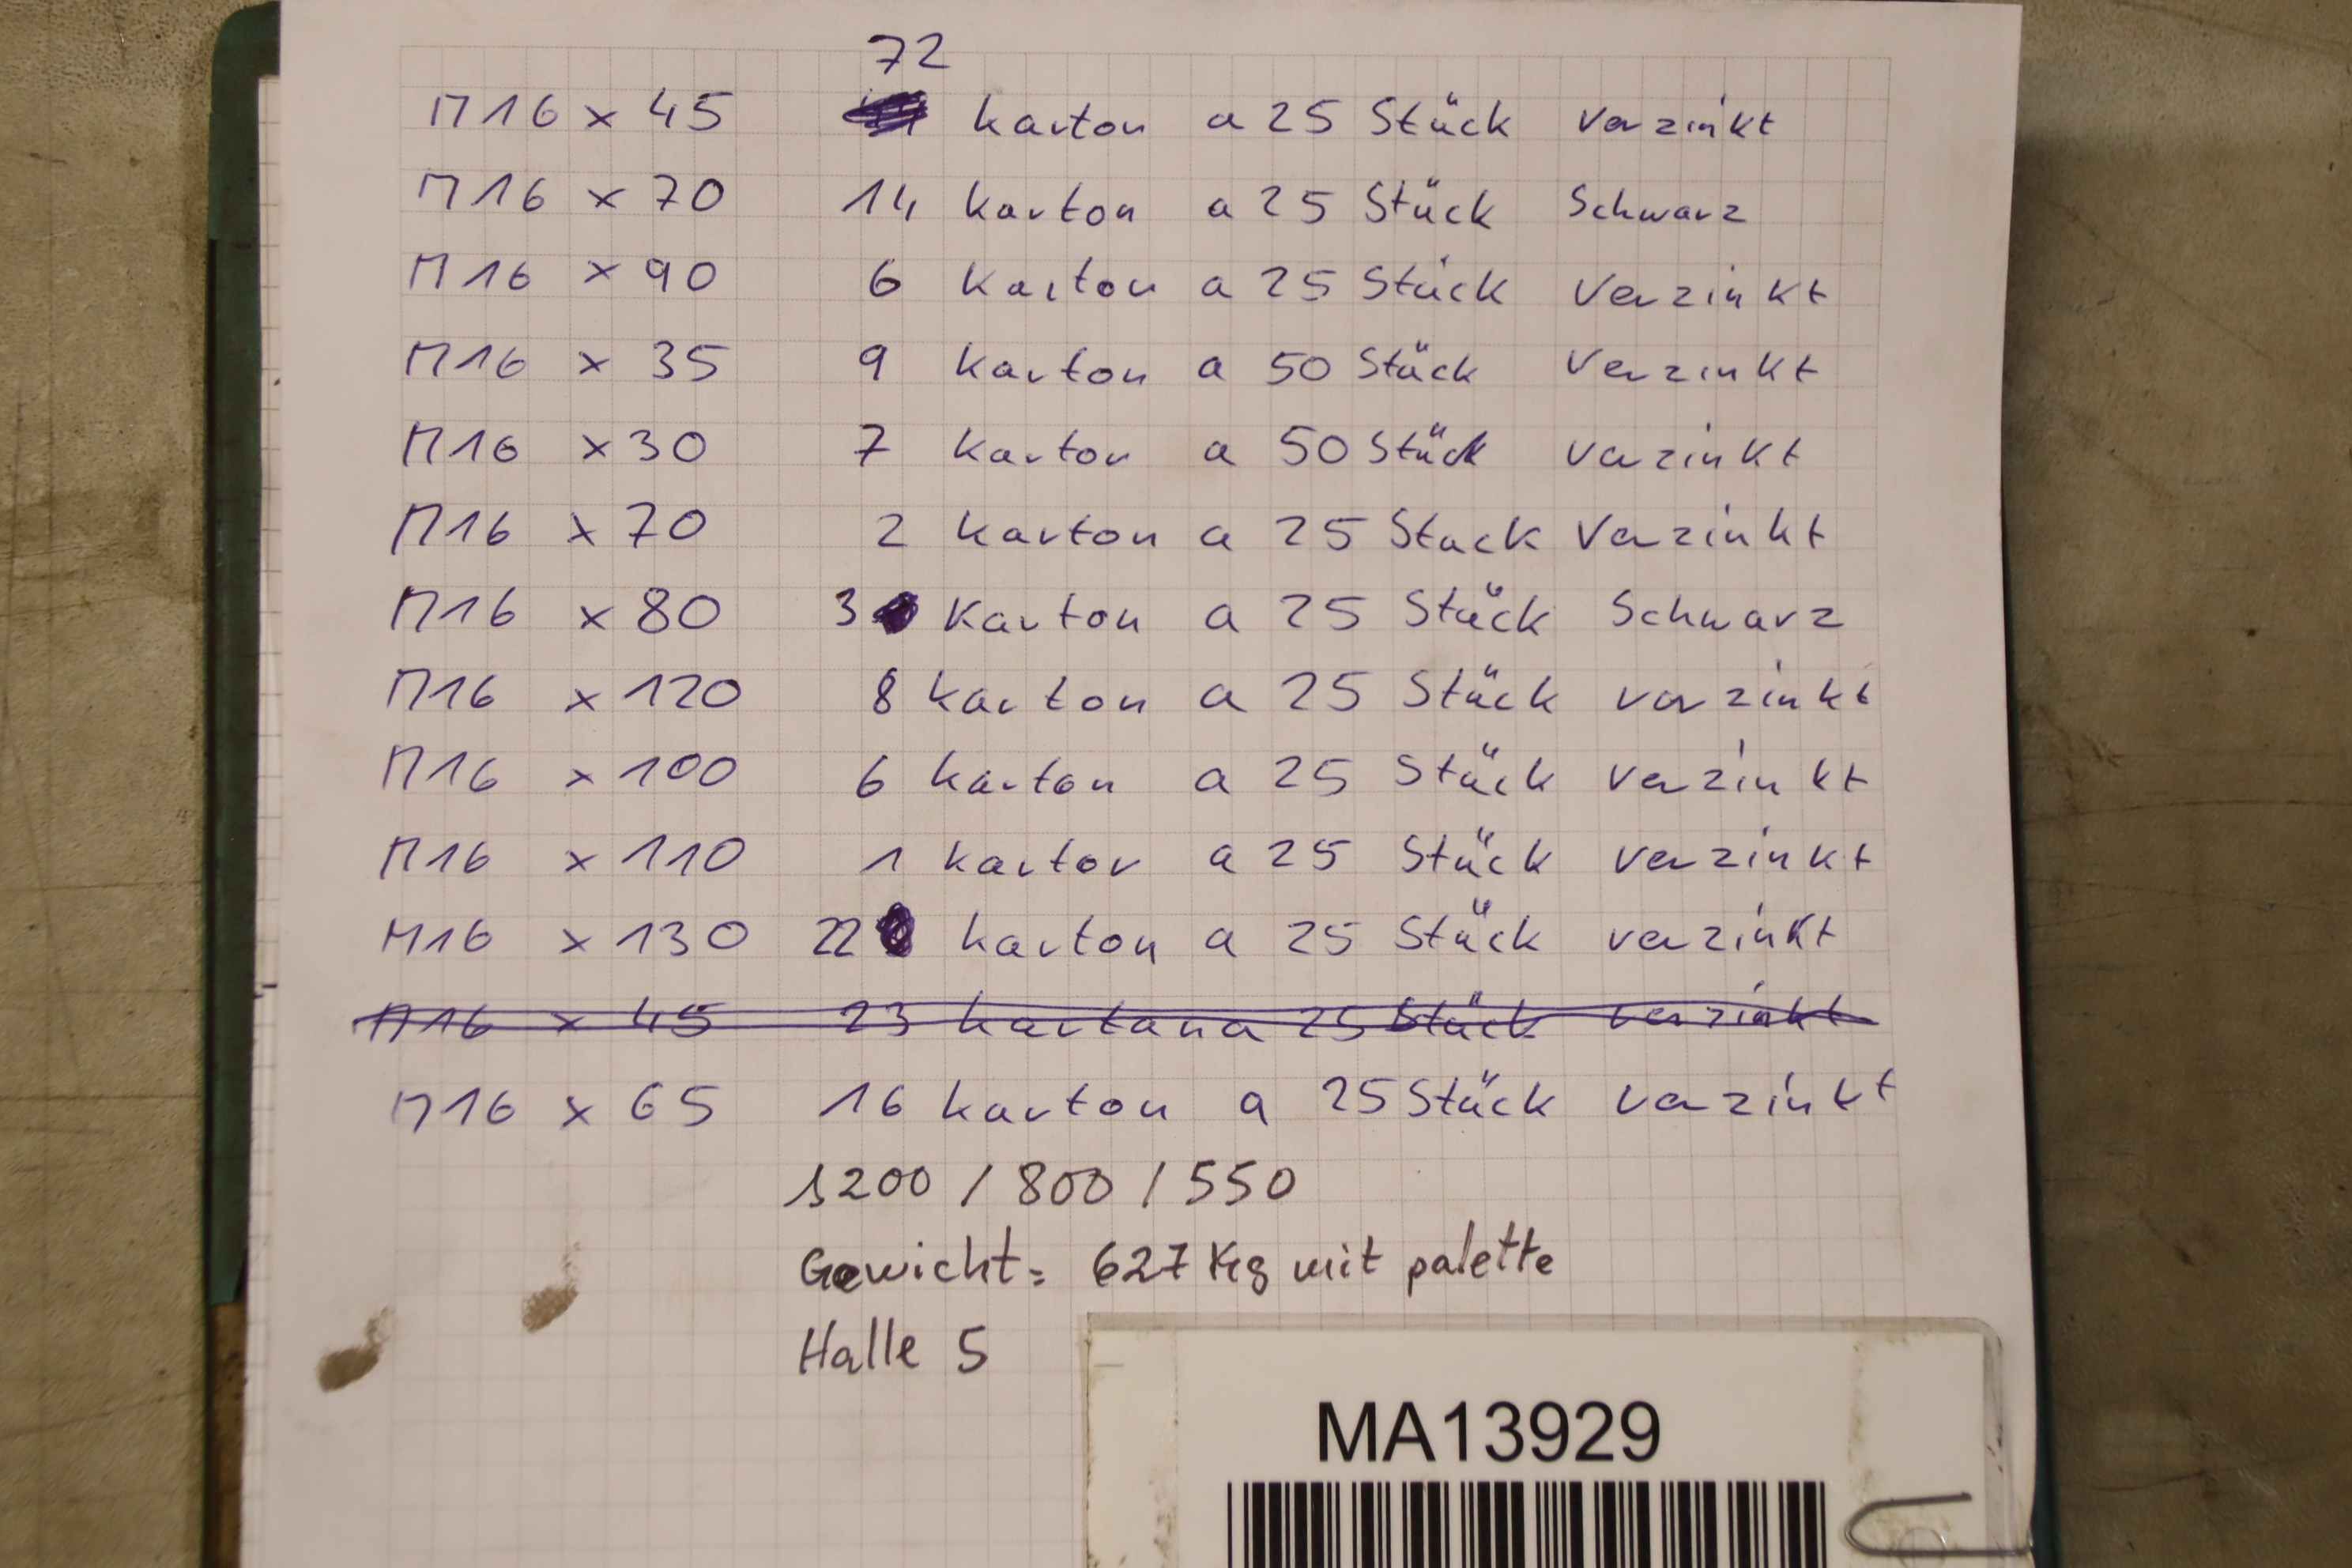 72
M16 x 45 karton a 25 Stück verzinkt
M16 x 70 14 karton a 25 Stück Schwarz
M16 x 90 6 karton a 25 Stück Verzinkt
M16 x 35 9 karton a 50 Stück Verzinkt
M16 x 30 7 karton a 50 Stück verzinkt
M16 x 70 2 karton a 25 Stück Verzinkt
M16 x 80 3 Karton a 25 Stück Schwarz
M16 x 120 8 karton a 25 Stück verzinkt
M16 x 100 6 karton a 25 Stück verzinkt
M16 x 110 1 karton a 25 Stück verzinkt
M16 x 130 22 karton a 25 Stück verzinkt
M16 x 45 23 karton a 25 Stück verzinkt
M16 x 65 16 karton a 25 Stück verzinkt
1200 / 800 / 550
Gewicht: 627 Kg mit palette
Halle 5
MA13929